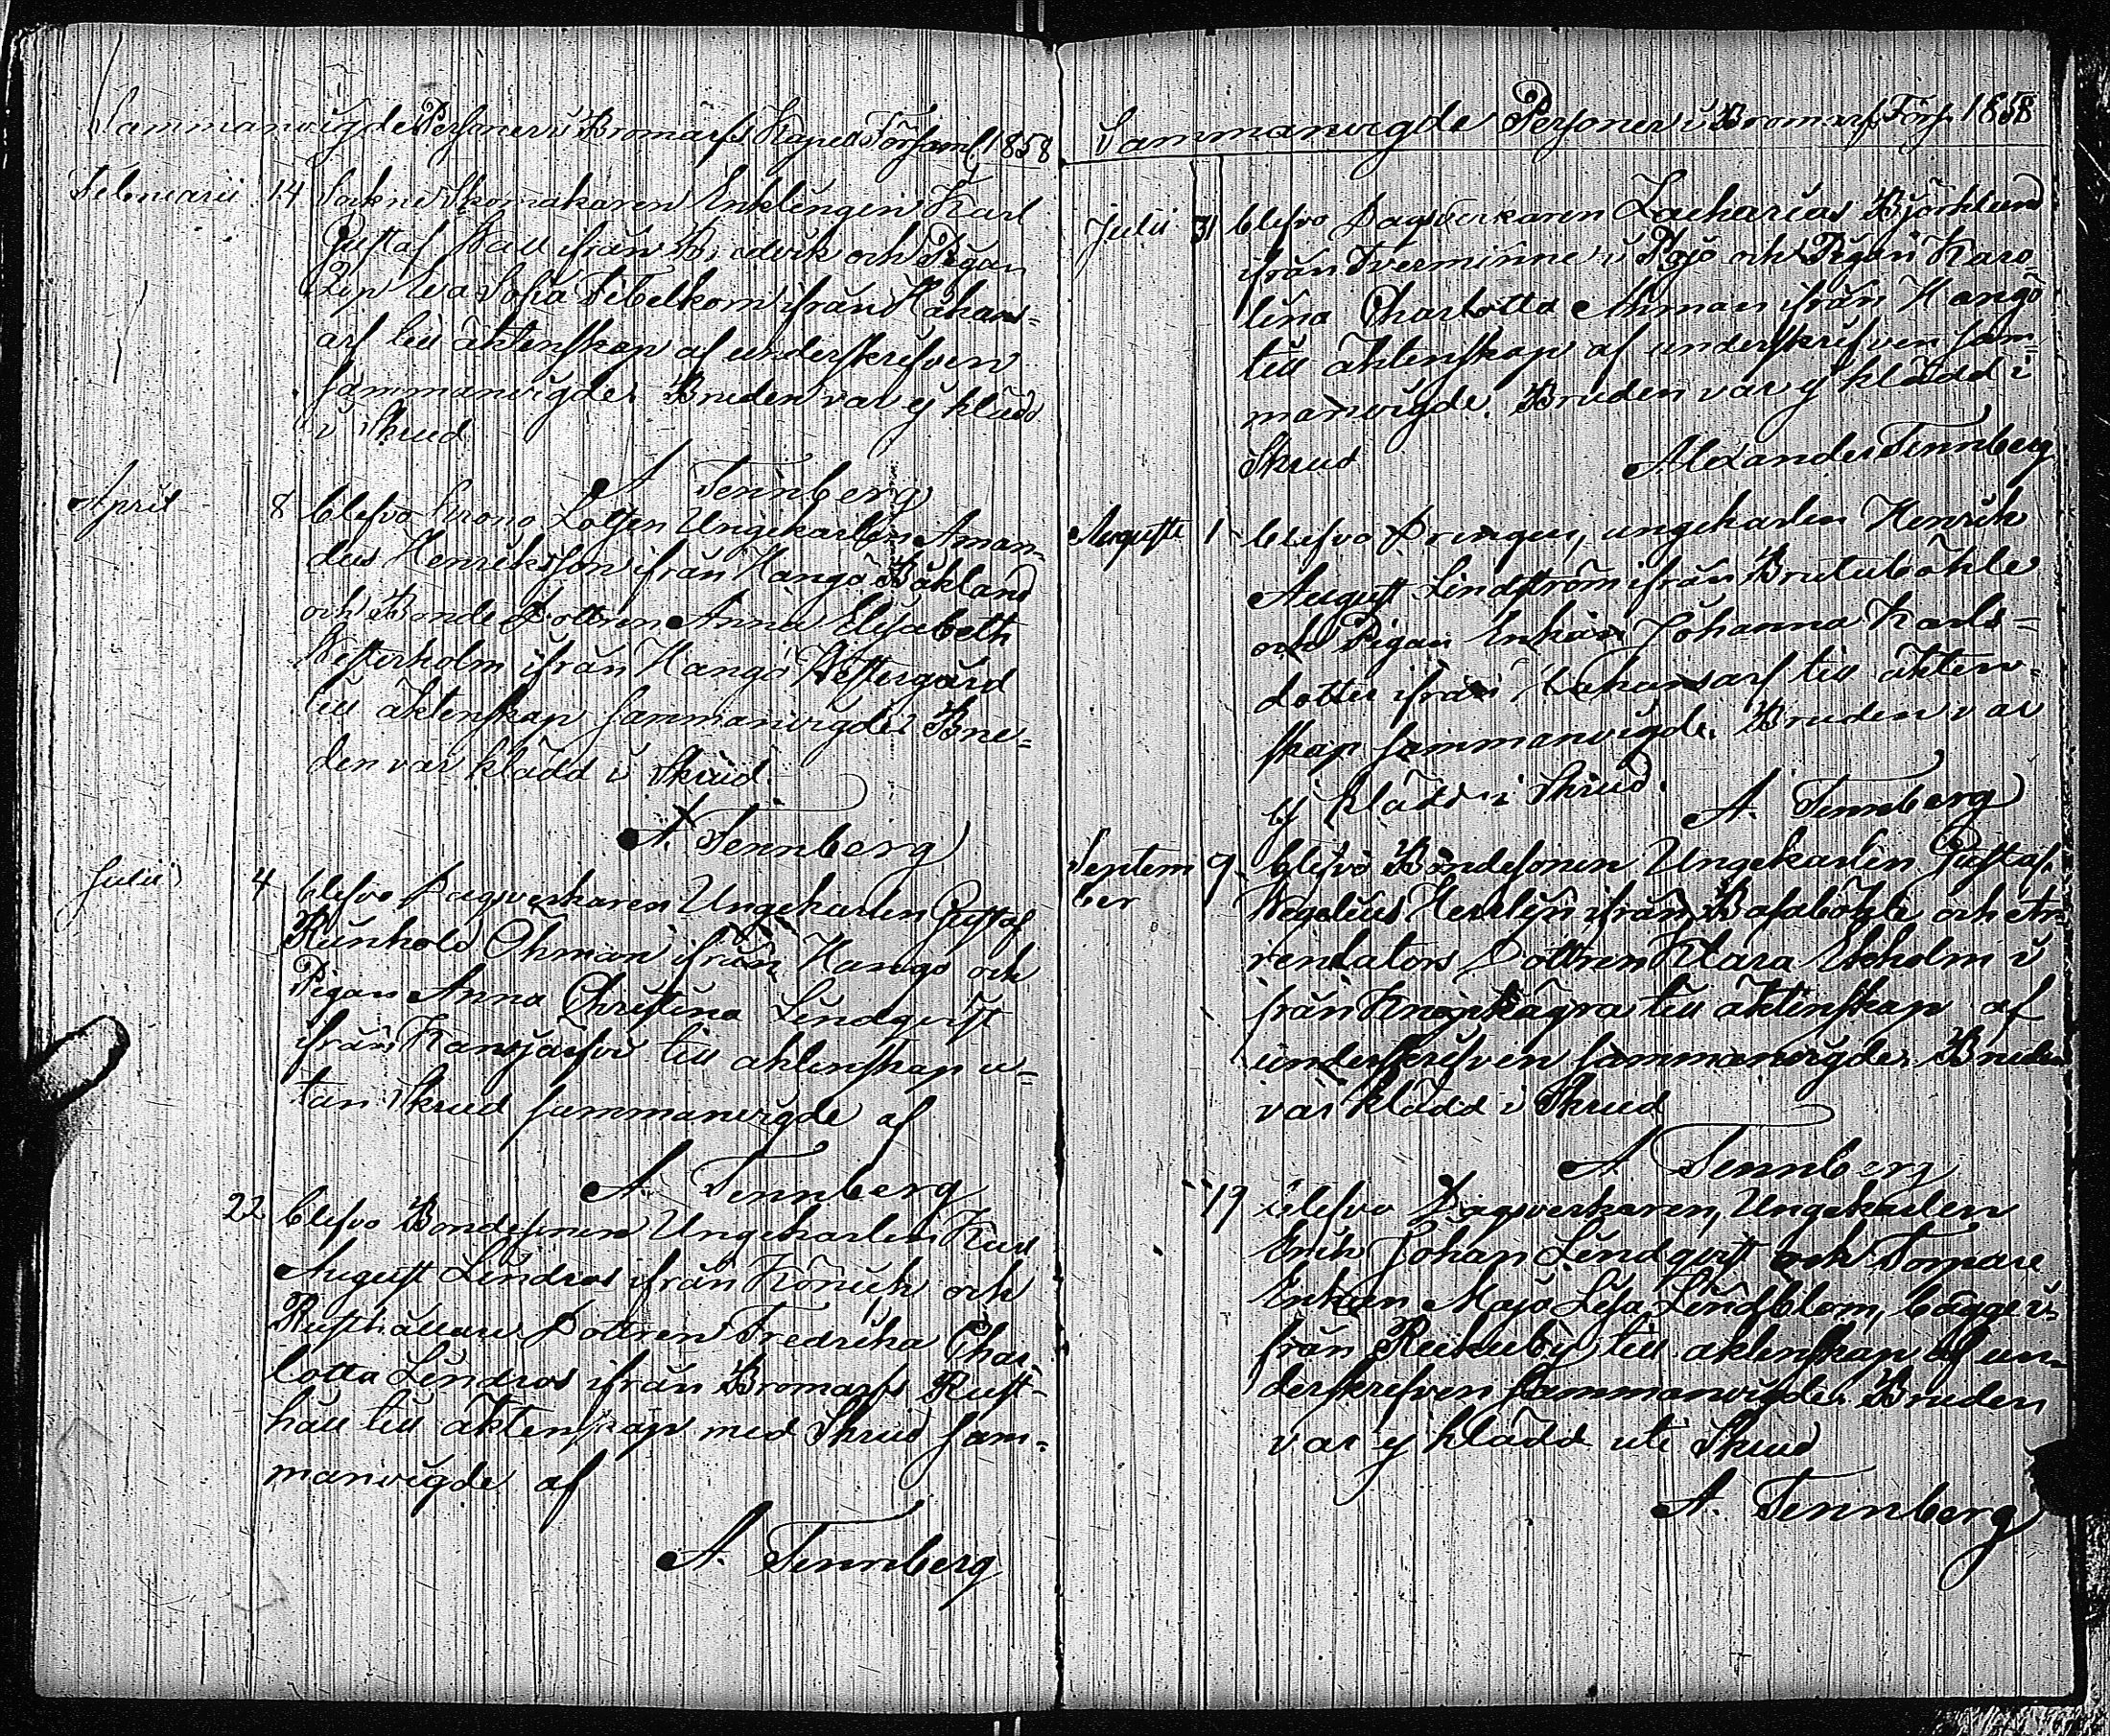 Sammanvigde Personer i Bromarfs Kapell Församl. 1858
Februarii 14 Sockne Skomakaren Enklingen Karl
Gustaf Wall ifrån och Pigan
Eva Sofia ifrån
arf till äktenskap af underskrifven
sammanvigde. Bruden var ej klädd
i Skrud
A Tennberg
April 8 blefvo Krono Lotsen Ungekarlen Aman-
dus Henriksson ifrån Hangö Båkland
och Bonde Dottren Anna Elisabeth
Westerholm ifrån Hangö Westergård
till äktenskap sammanvigde. Bru=
den var klädd i Skrud.
A. Tennberg
Julii 4 blefvo Dagsverkaren Ungekarlen Gustaf
Reinhold Öhman ifrån Hangö och
Pigan Anna Christina Lindqvist
ifrån Kansjärfvi till äktenskap u=
tan Skrud sammanvigde af
A. Tennberg
22 blefvo Bondesonen Ungekarlen Karl
August Lindros ifrån och
Rusthållare Dottren Fredrika Char
lotta Lindros ifrån Bromarfs Rust-
håll till äktenskap med Skrud sam-
manvigde af
A. Tennberg
Sammanvigde Personer i Bromarfs Förs. 1858
Julii 31 blefvo Dagsverkaren Zacharias Björklund
ifrån Tverminne i Pojo och Pigan Karo
lina Charlotta Åhman ifrån Hangö
till äktenskap af underskrifven sam=
manvigde. Bruden var ej klädd i
Skrud
Alexander Tennberg
Augusti 1 blefvo Drängen, ungekarlen Henrik
August Lindström ifrån Brutuböhle
och Pigan Enkan Johanna Karls=
dotter ifrån till äkten=
skap sammanvigde. Bruden var
ej klädd i Skrud.
A. Tennberg
Septem 9 blefvo Bondesonen Ungekarlen Gustaf
ber ifrån och Ar-
rendators Dottren Klara Ekholm i
från till äktenskap af
underskrifven sammanvigde. Bruden
var klädd i Skrud
A Tennberg
19 blefvo Dagsverkaren, Ungekarlen
Erik Johan Lindqvist och Tomare
Enkan Maja Lisa Lindblom, bägge i-
från till äktenskap af un-
derskrifven sammanvigde. Bruden
var ej klädd uti Skrud
A. Tennberg